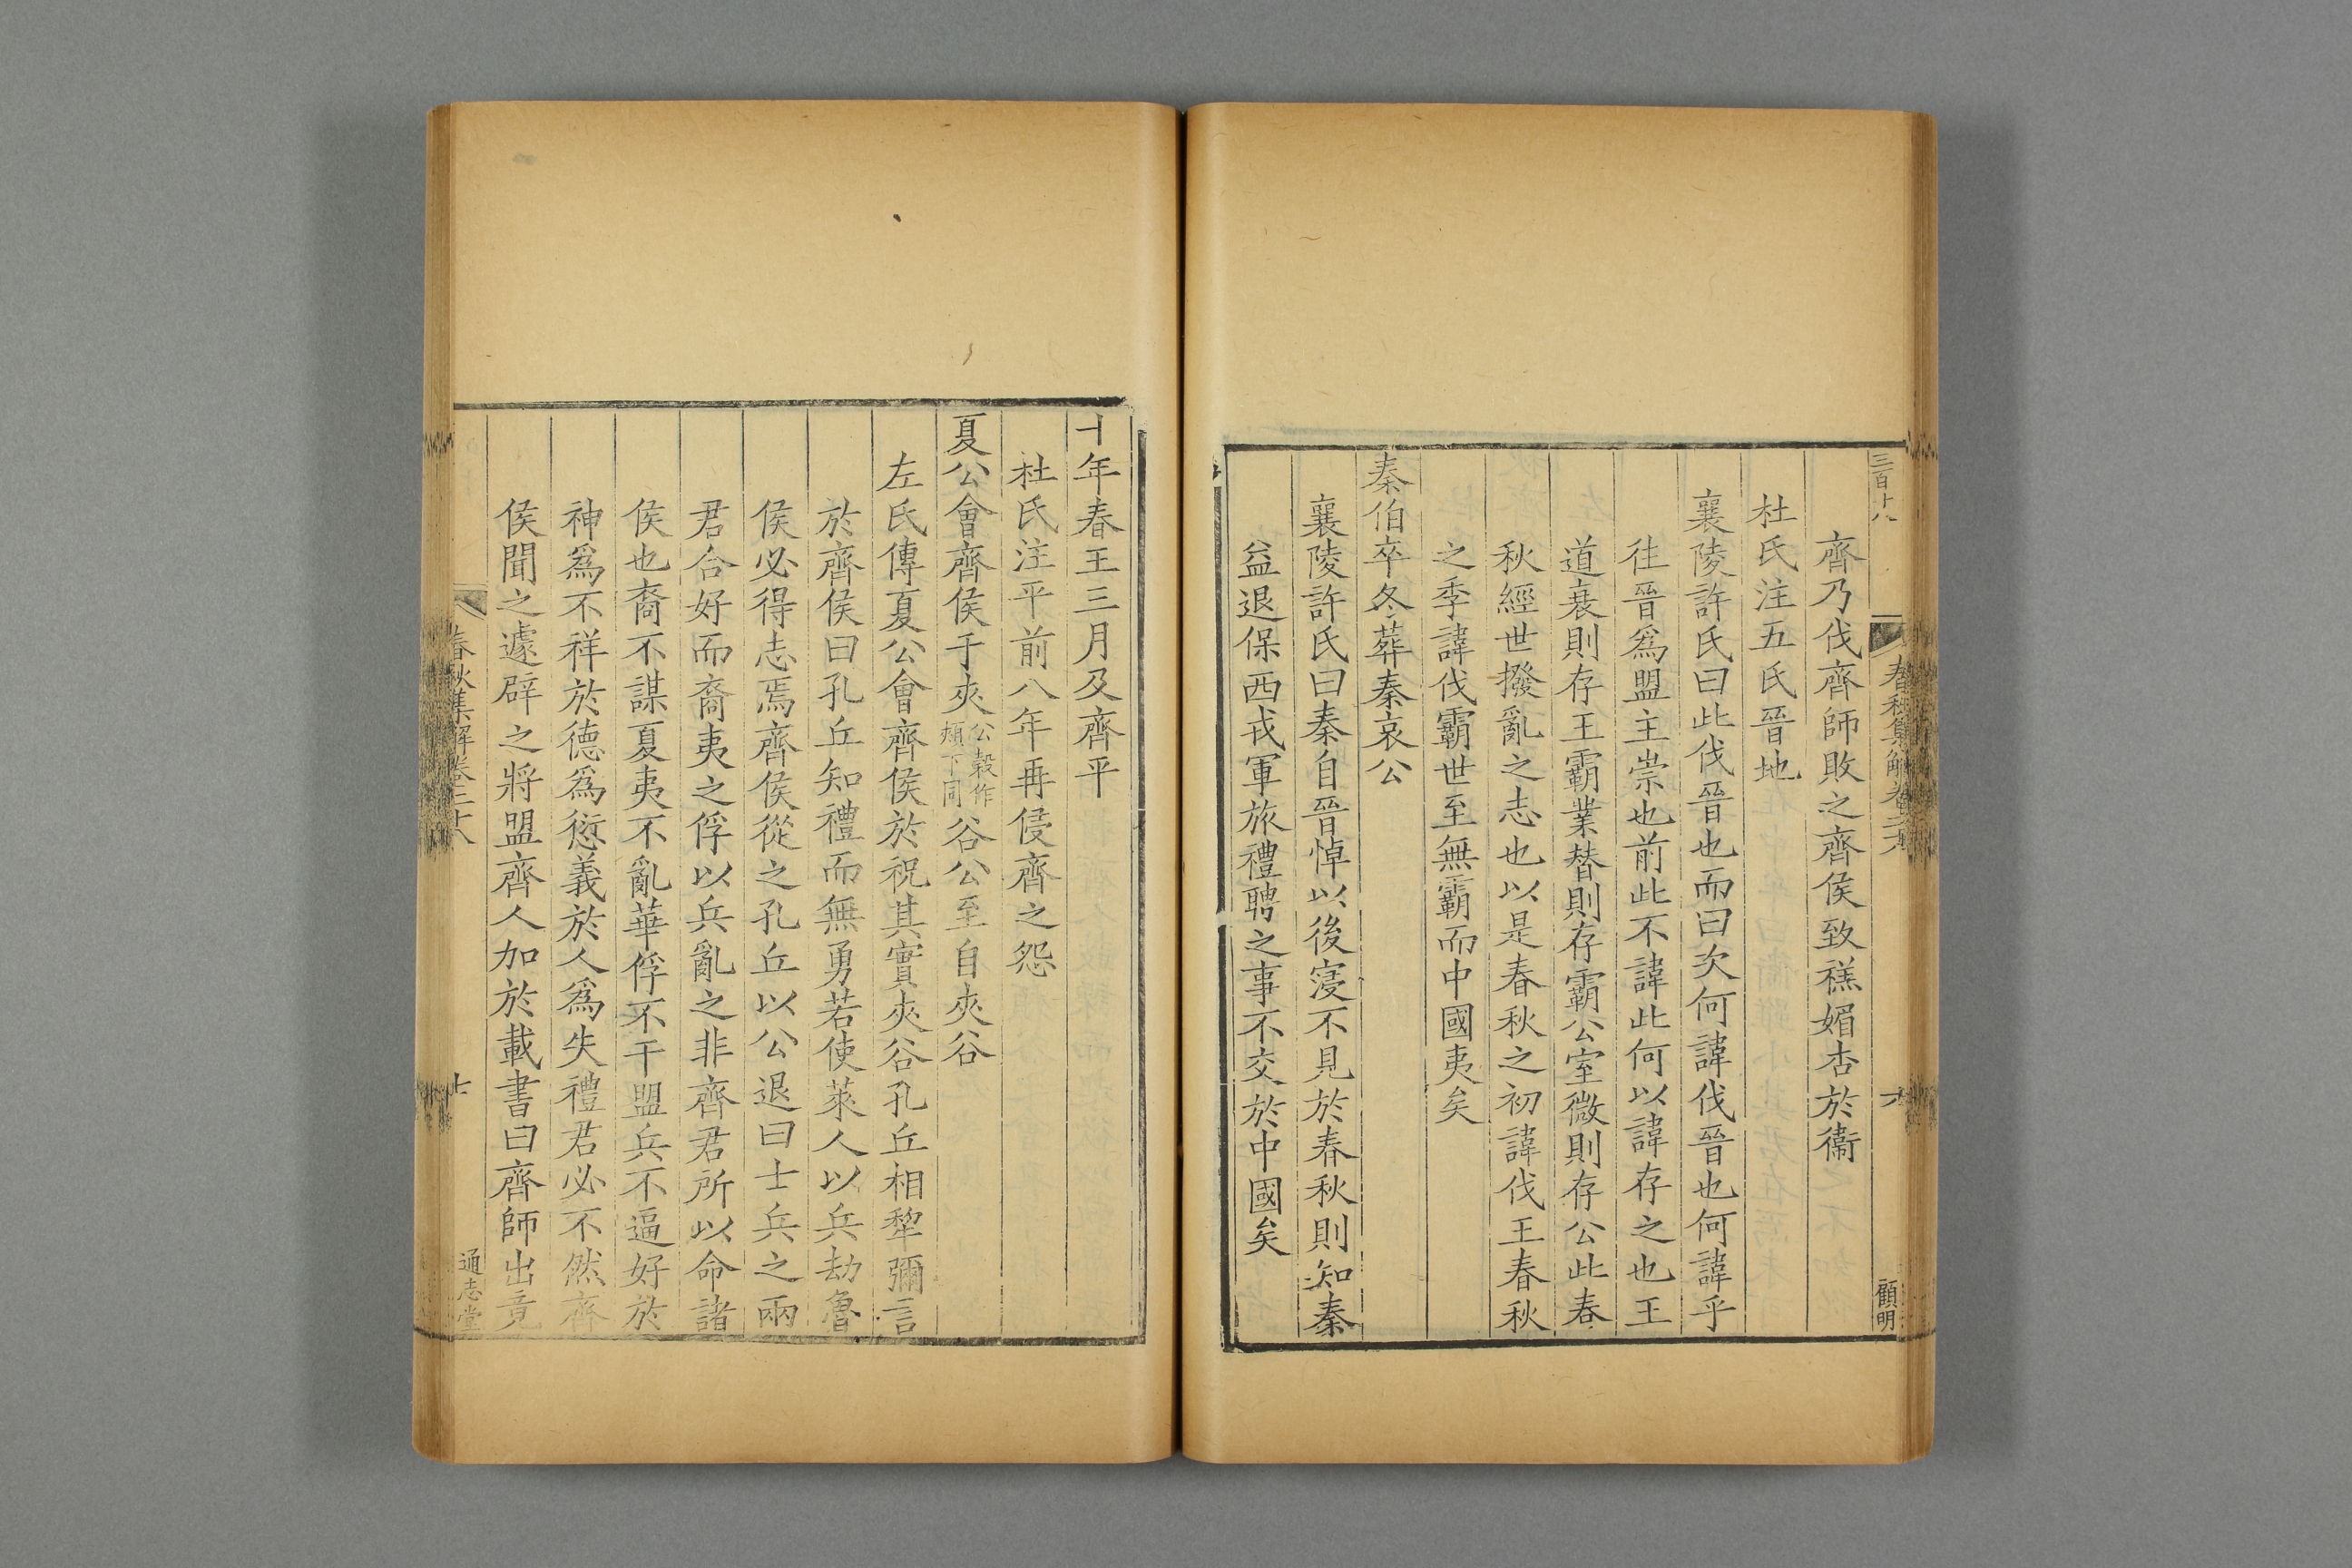 三百十八
春秋集解卷二十八
六
顧明
齊乃伐齊師敗之齊侯致禚媚杏於衞
杜氏注五氏晉地
襄陵許氏曰此伐晉也而曰次何諱伐晉也何諱乎
往晉爲盟主崇也前此不諱此何以諱存之也王
道衰則存王霸業替則存霸公室微則存公此春
秋經世撥亂之志也以是春秋之初諱伐王春秋
之季諱伐霸世至無霸而中國夷矣
秦伯卒冬葬秦哀公
襄陵許氏曰秦自晉悼以後寖不見於春秋則知秦
益退保西戎軍旅禮聘之事不交於中國矣
十年春王三月及齊平
杜氏注平前八年再侵齊之怨
夏公會齊侯于夾公穀作頰下同谷公至自夾谷
左氏傳夏公會齊侯於祝其實夾谷孔丘相犂彌言
於齊侯曰孔丘知禮而無勇若使萊人以兵劫魯
侯必得志焉齊侯從之孔丘以公退曰士兵之兩
君合好而裔夷之俘以兵亂之非齊君所以命諸
侯也裔不謀夏夷不亂華俘不干盟兵不逼好於
神爲不祥於德爲愆義於人爲失禮君必不然齊
侯聞之遽辟之將盟齊人加於載書曰齊師出竟
春秋集解卷二十八
七
通志堂